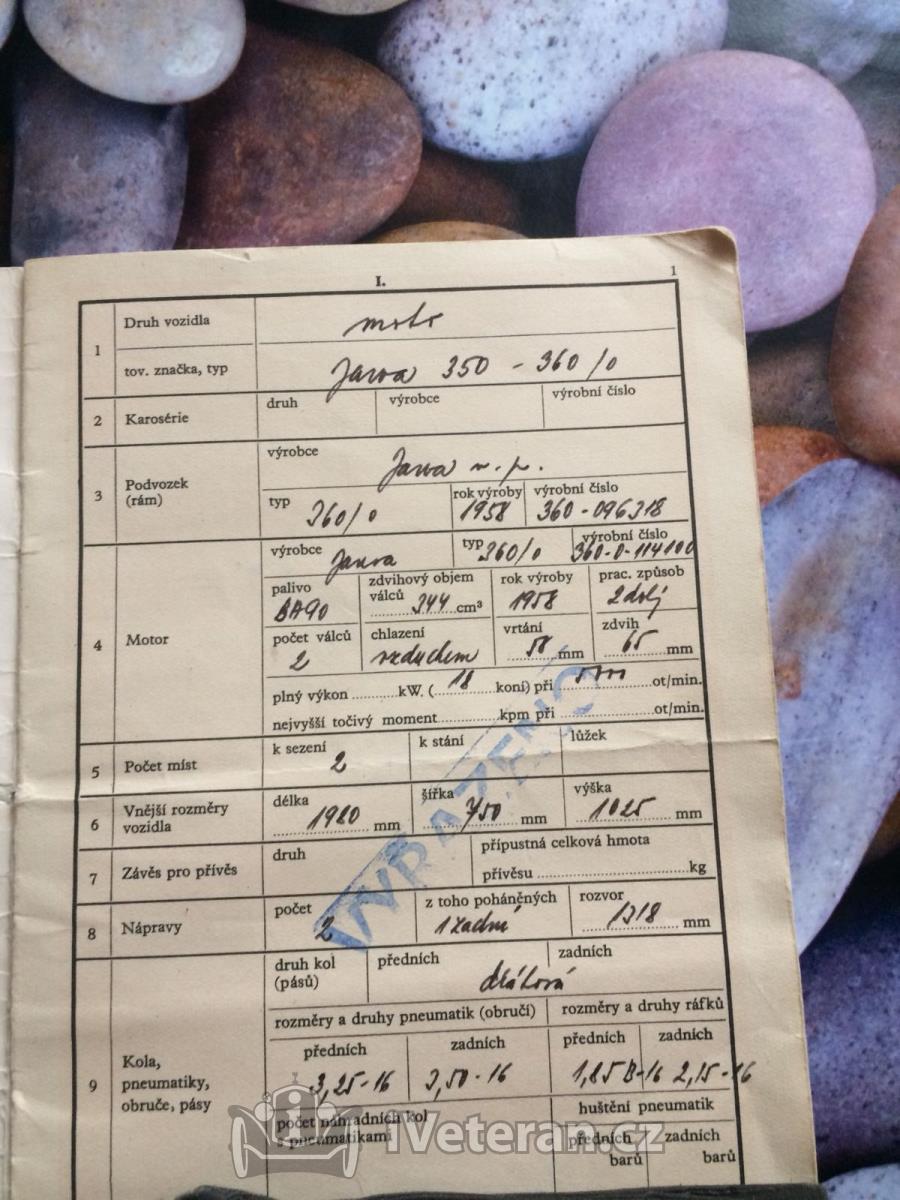 I. 1
1 Druh vozidla moto
tov. značka, typ Jawa 350 - 360/0
2 Karosérie druh výrobce výrobní číslo
3 Podvozek (rám) výrobce Jawa n. p.
typ 360/0 rok výroby 1958 výrobní číslo 360-096318
4 Motor výrobce Jawa typ 360/0 výrobní číslo 360-0-114100
palivo BA90 zdvihový objem válců 344 cm³ rok výroby 1958 prac. způsob 2dobý
počet válců 2 chlazení vzduchem vrtání 58 mm zdvih 65 mm
plný výkon kW. (18 koní) při ot/min.
nejvyšší točivý moment kpm při ot/min.
5 Počet míst k sezení 2 k stání lůžek
6 Vnější rozměry vozidla délka 1980 mm šířka 750 mm výška 1025 mm
7 Závěs pro přívěs druh přípustná celková hmota přívěsu kg
8 Nápravy počet 2 z toho poháněných 1 zadní rozvor 1318 mm
VYŘAZENO
9 Kola, pneumatiky, obruče, pásy druh kol (pásů) předních zadních drátová
rozměry a druhy pneumatik (obručí) rozměry a druhy ráfků
předních zadních předních zadních
3,25-16 3,50-16 1,85 B-16 2,15-16
počet náhradních kol s pneumatikami huštění pneumatik
předních barů zadních barů
iVeteran.cz